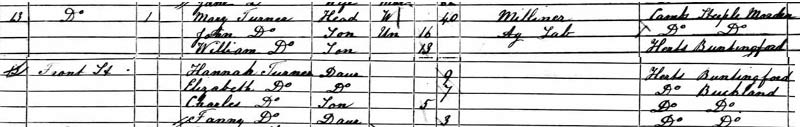 13 Do 1 Mary Turner Head W 40 Milliner Cambs Steeple Morden
John Do Son Un 16 Ag Lab Do Do
William Do Son 13 Herts Buntingford
Front St Hannah Turner Daur 9 Herts Buntingford
Elizabeth Do Do 7 Do Buckland
Charles Do Son 5 Do Do
Fanny Do Daur 3 Do Do